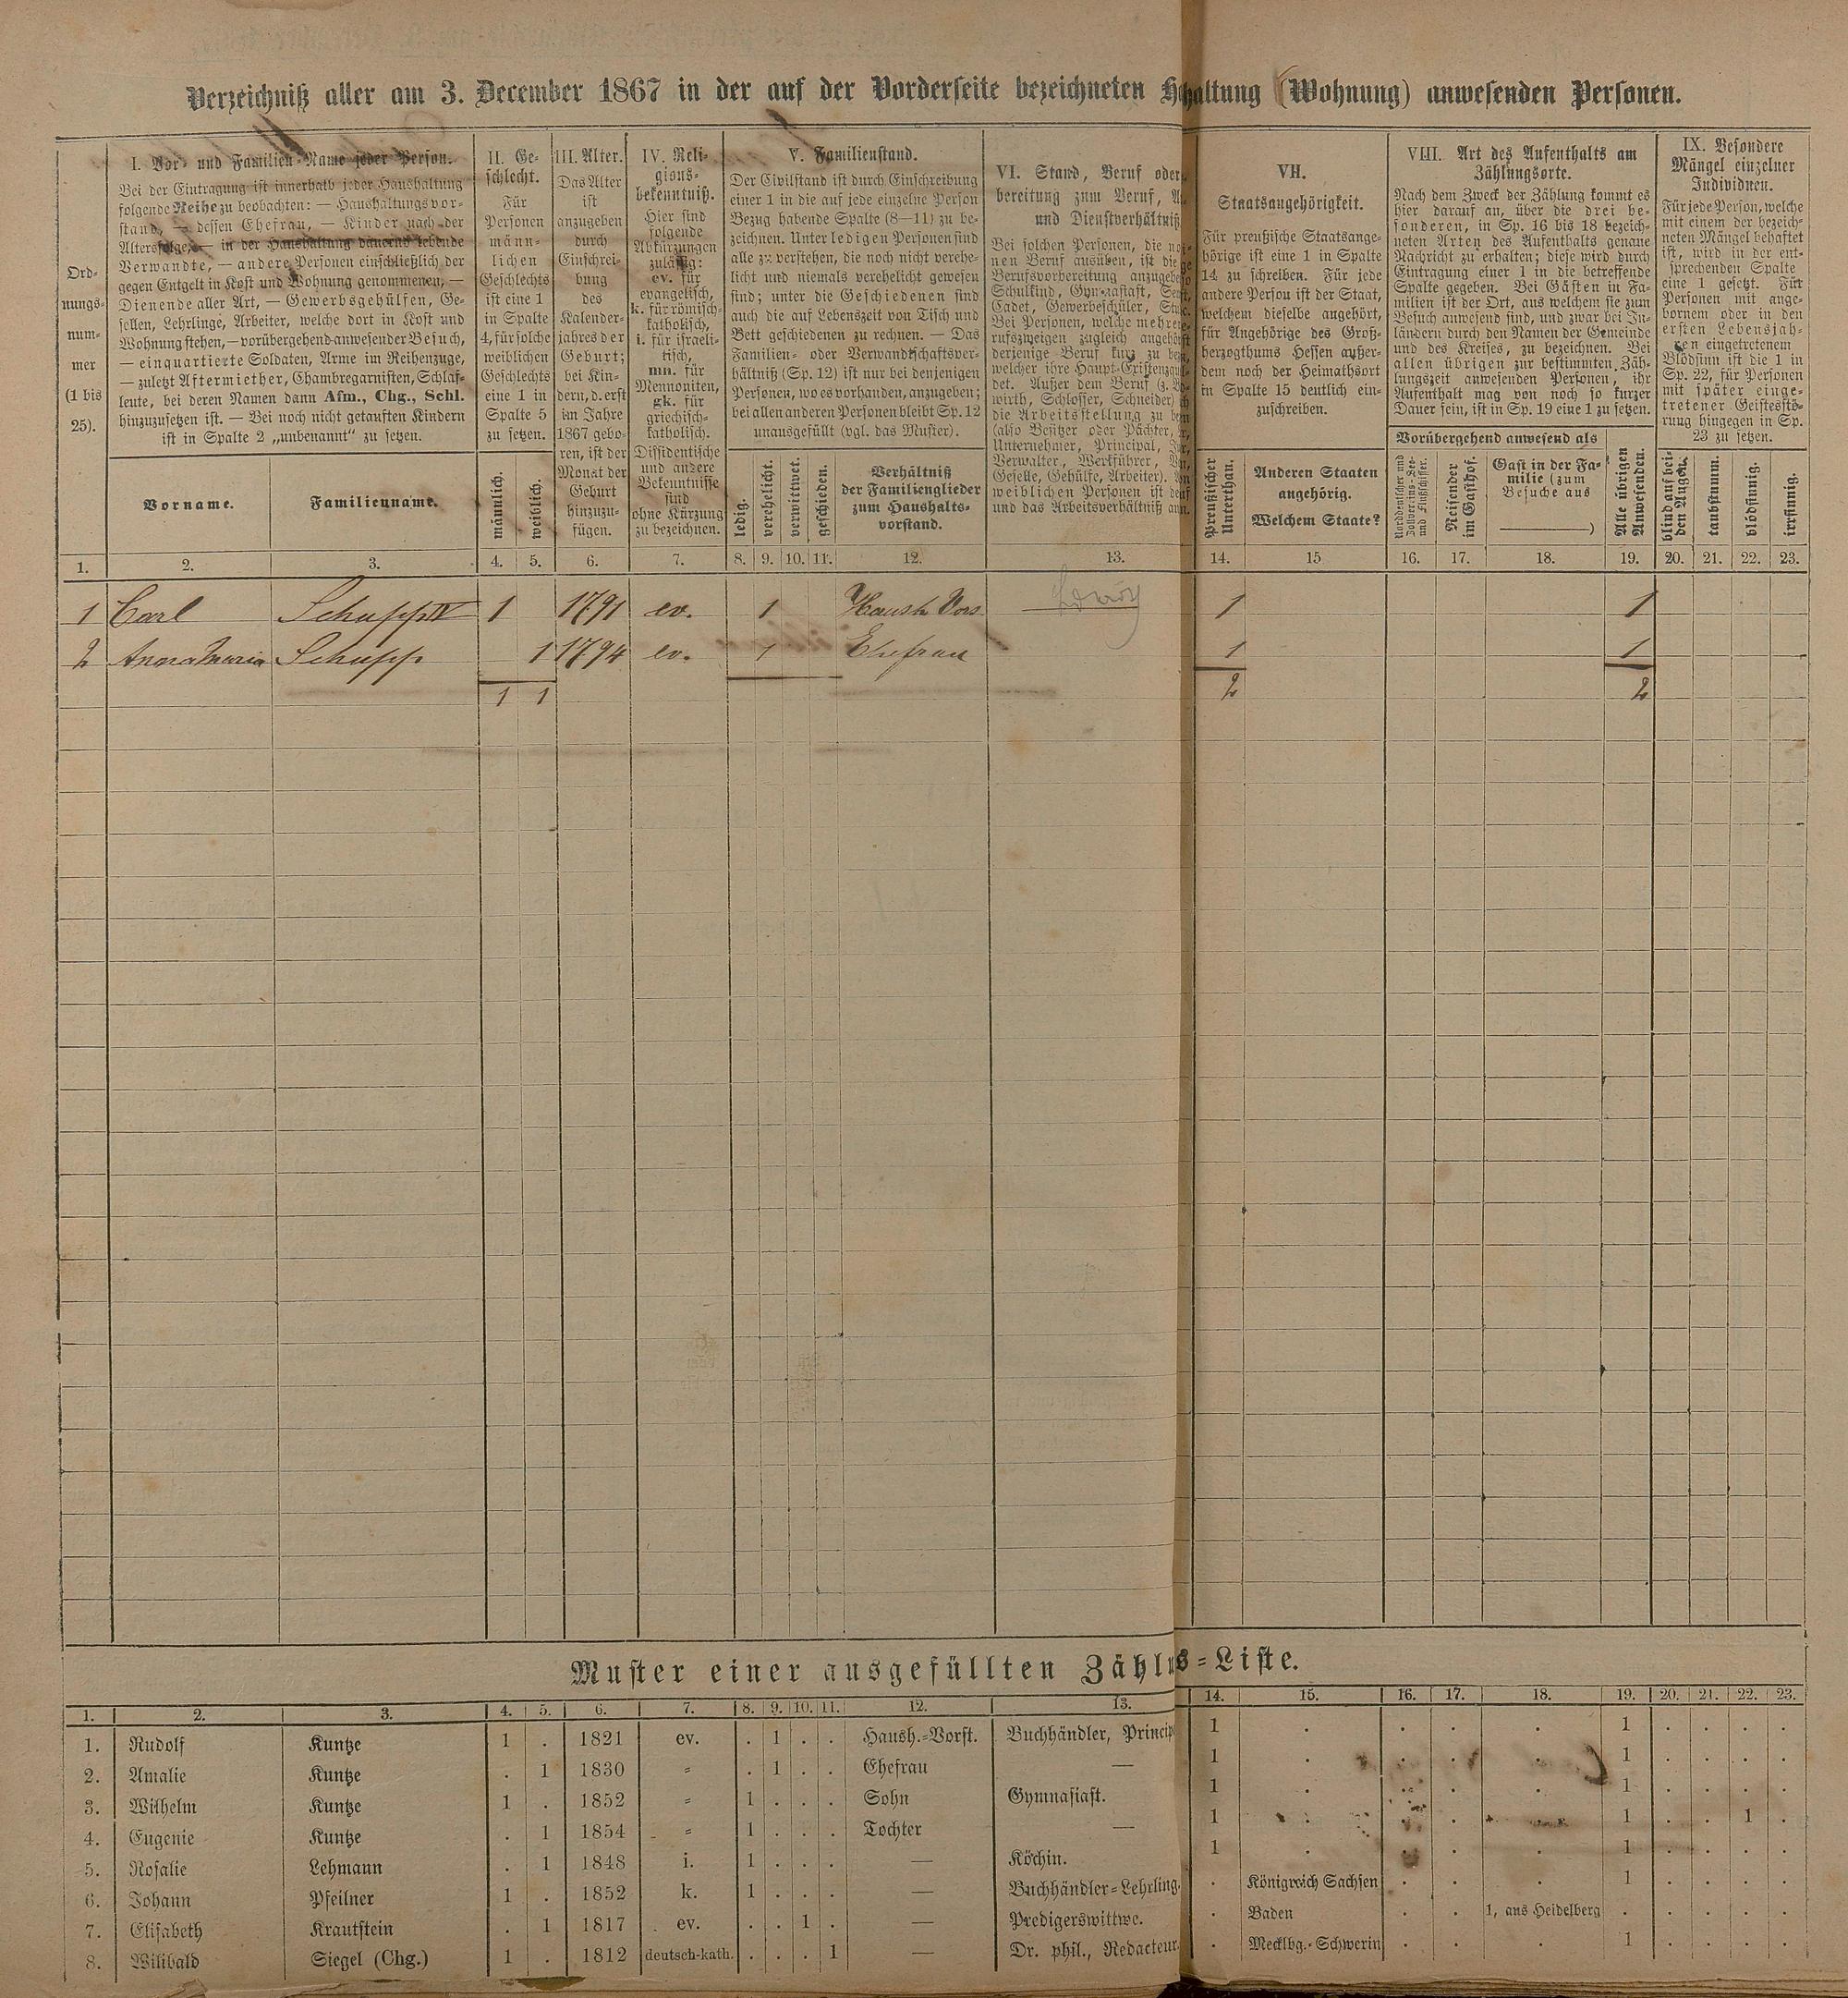 Verzeichniß aller am 3. December 1867 in der auf der Vorderseite bezeichneten Haltung (Wohnung) anwesenden Personen.
Ord-
nungs-
num-
mer
(1 bis
25).
I. Vor- und Familien-Name jeder Person.
Bei der Eintragung ist innerhalb jeder Haushaltung
folgende Reihe zu beobachten: — Haushaltungsvor-
stand, — dessen Ehefrau, — Kinder nach der
Altersfolge, — in der Haushaltung dauernd lebende
Verwandte, — andere Personen einschließlich der
gegen Entgelt in Kost und Wohnung genommenen, —
Dienende aller Art, — Gewerbsgehülfen, Ge-
sellen, Lehrlinge, Arbeiter, welche dort in Kost und
Wohnung stehen, — vorübergehend anwesender Besuch,
— einquartierte Soldaten, Arme im Reihenzuge,
— zuletzt Aftermiether, Chambregarnisten, Schlaf-
leute, bei deren Namen dann Afm., Chg., Schl.
hinzuzusetzen ist. — Bei noch nicht getauften Kindern
ist in Spalte 2 „unbenannt“ zu setzen.
Vorname.
Familienname.
II. Ge-
schlecht.
Für
Personen
männ-
lichen
Geschlechts
ist eine 1
in Spalte
4, für solche
weiblichen
Geschlechts
eine 1 in
Spalte 5
zu setzen.
männlich.
weiblich.
III. Alter.
Das Alter
ist
anzugeben
durch
Einschrei-
bung
des
Kalender-
jahres der
Geburt;
bei Kin-
dern, d. erst
im Jahre
1867 gebo-
ren, ist der
Monat der
Geburt
hinzuzu-
fügen.
IV. Reli-
gions-
bekenntniß.
Hier sind
folgende
Abkürzungen
zulässig:
ev. für
evangelisch,
k. für römisch-
katholisch,
i. für israeli-
tisch,
mn. für
Mennoniten,
gk. für
griechisch-
katholisch.
Dissidentische
und andere
Bekenntnisse
sind
ohne Kürzung
zu bezeichnen.
V. Familienstand.
Der Civilstand ist durch Einschreibung
einer 1 in die auf jede einzelne Person
Bezug habende Spalte (8—11) zu be-
zeichnen. Unter ledigen Personen sind
alle zu verstehen, die noch nicht verehe-
licht und niemals verehelicht gewesen
sind; unter die Geschiedenen sind
auch die auf Lebenszeit von Tisch und
Bett geschiedenen zu rechnen. — Das
Familien- oder Verwandtschaftsver-
hältniß (Sp. 12) ist nur bei denjenigen
Personen, wo es vorhanden, anzugeben;
bei allen anderen Personen bleibt Sp. 12
unausgefüllt (vgl. das Muster).
ledig.
verehelicht.
verwittwet.
geschieden.
Verhältniß
der Familienglieder
zum Haushalts-
vorstand.
VI. Stand, Beruf oder
bereitung zum Beruf,
und Dienstverhältniß
Bei solchen Personen, die
nen Beruf ausüben, ist die
Berufsvorbereitung
Schulkind, Gymnasiast,
Cadet, Gewerbeschüler,
Bei Personen, welche mehreren
rufszweigen zugleich
derjenige Beruf kurz zu
welcher ihre Haupt-
det. Außer dem Beruf (z.
wirth, Schlosser, Schneider)
die Arbeitsstellung zu
(also Besitzer oder Pächter,
Unternehmer, Principal,
Verwalter, Werkführer,
Geselle, Gehülfe, Arbeiter).
weiblichen Personen ist
und das Arbeitsverhältniß
VII.
Staatsangehörigkeit.
Für preußische Staatsange-
hörige ist eine 1 in Spalte
14 zu schreiben. Für jede
andere Person ist der Staat,
welchem dieselbe angehört,
für Angehörige des Groß-
herzogthums Hessen außer-
dem noch der Heimathsort
in Spalte 15 deutlich ein-
zuschreiben.
Preußischer
Unterthan.
Anderen Staaten
angehörig.
Welchem Staate?
VIII. Art des Aufenthalts am
Zählungsorte.
Nach dem Zweck der Zählung kommt es
hier darauf an, über die drei be-
sonderen, in Sp. 16 bis 18 bezeich-
neten Arten des Aufenthalts genaue
Nachricht zu erhalten; diese wird durch
Eintragung einer 1 in die betreffende
Spalte gegeben. Bei Gästen in Fa-
milien ist der Ort, aus welchem sie zum
Besuch anwesend sind, und zwar bei In-
ländern durch den Namen der Gemeinde
und des Kreises, zu bezeichnen. Bei
allen übrigen zur bestimmten Zäh-
lungszeit anwesenden Personen, ihr
Aufenthalt mag von noch so kurzer
Dauer sein, ist in Sp. 19 eine 1 zu setzen.
Vorübergehend anwesend als
Norddeutscher und
Zollvereins-See-
und Flußschiffer.
Reisender
im Gasthof.
Gast in der Fa-
milie (zum
Besuche aus
———)
Alle übrigen
Anwesenden.
IX. Besondere
Mängel einzelner
Individuen.
Für jede Person, welche
mit einem der bezeich-
neten Mängel behaftet
ist, wird in der ent-
sprechenden Spalte
eine 1 gesetzt. Für
Personen mit ange-
bornem oder in den
ersten Lebensjah-
ren eingetretenem
Blödsinn ist die 1 in
Sp. 22, für Personen
mit später einge-
tretener Geistesstö-
rung hingegen in Sp.
23 zu setzen.
blind auf bei-
den Augen.
taubstumm.
blödsinnig.
irrsinnig.
1. 2. 3. 4. 5. 6. 7. 8. 9. 10. 11. 12. 13. 14. 15 16. 17. 18. 19. 20. 21. 22. 23.
1 Carl Schupp IV 1 1791 ev. 1 Haush Vors. 1 1
2 Anna Maria Schupp 1 1794 ev. 1 Ehefrau 1 1
1 1 2 2
Muster einer ausgefüllten Zählu s-Liste.
1. 2. 3. 4. 5. 6. 7. 8. 9. 10. 11. 12. 13. 14. 15. 16. 17. 18. 19. 20. 21. 22. 23.
1. Rudolf Kuntze 1 . 1821 ev. . 1 . . Haush.-Vorst. Buchhändler, Princip 1 . . . . 1 . . . .
2. Amalie Kuntze . 1 1830 " . 1 . . Ehefrau — 1 . . . . 1 . . . .
3. Wilhelm Kuntze 1 . 1852 " 1 . . . Sohn Gymnasiast. 1 . . . . 1 . . . .
4. Eugenie Kuntze . 1 1854 " 1 . . . Tochter — 1 . . . . 1 . . 1 .
5. Rosalie Lehmann . 1 1848 i. 1 . . . — Köchin. 1 . . . . 1 . . . .
6. Johann Pfeilner 1 . 1852 k. 1 . . . — Buchhändler-Lehrling. . Königreich Sachsen . . . 1 . . . .
7. Elisabeth Krautstein . 1 1817 ev. . . 1 . — Predigerswittwe. . Baden . . 1, aus Heidelberg . . . . .
8. Wilibald Siegel (Chg.) 1 . 1812 deutsch-kath. . . . 1 — Dr. phil., Redacteur. . Mecklbg.-Schwerin . . . 1 . . . .